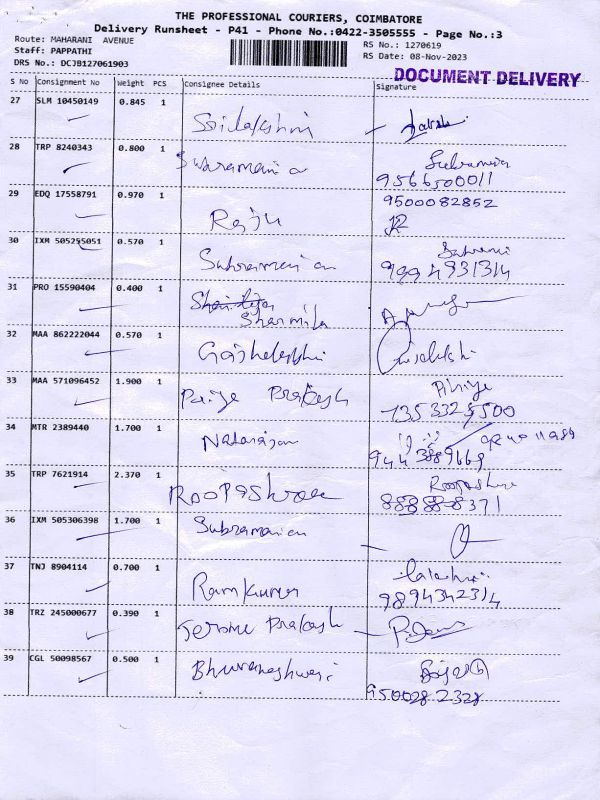 THE PROFESSIONAL COURIERS, COIMBATORE
Delivery Runsheet - P41 - Phone No.:0422-3505555 - Page No.:3
Route: MAHARANI AVENUE
RS No.: 1270619
Staff: PAPPATHI
RS Date: 08-Nov-2023
DRS No.: DCJB127061903
DOCUMENT DELIVERY
S No Consignment No Weight PCS Consignee Details Signature
27 SLM 10450149 0.845 1
Sridakshmi
28 TRP 8240343 0.800 1
Swaramania
9566500011
29 EDQ 17558791 0.970 1
9500082852
Raju
30 IXM 505255051 0.570 1
Subramanian
9994931314
31 PRO 15590404 0.400 1
Sharmila
32 MAA 862222044 0.570 1
33 MAA 571096452 1.900 1
Prakash
34 MTR 2389440 1.700 1
Natarajan
35 TRP 7621914 2.370 1
Roopashree
36 IXM 505306398 1.700 1
Subramanian
37 TNJ 8904114 0.700 1
Ramkumar
9894342314
38 TRZ 245000677 0.390 1
Jerome Prakash
39 CGL 50098567 0.500 1
Bhuvaneshwari
9500282328